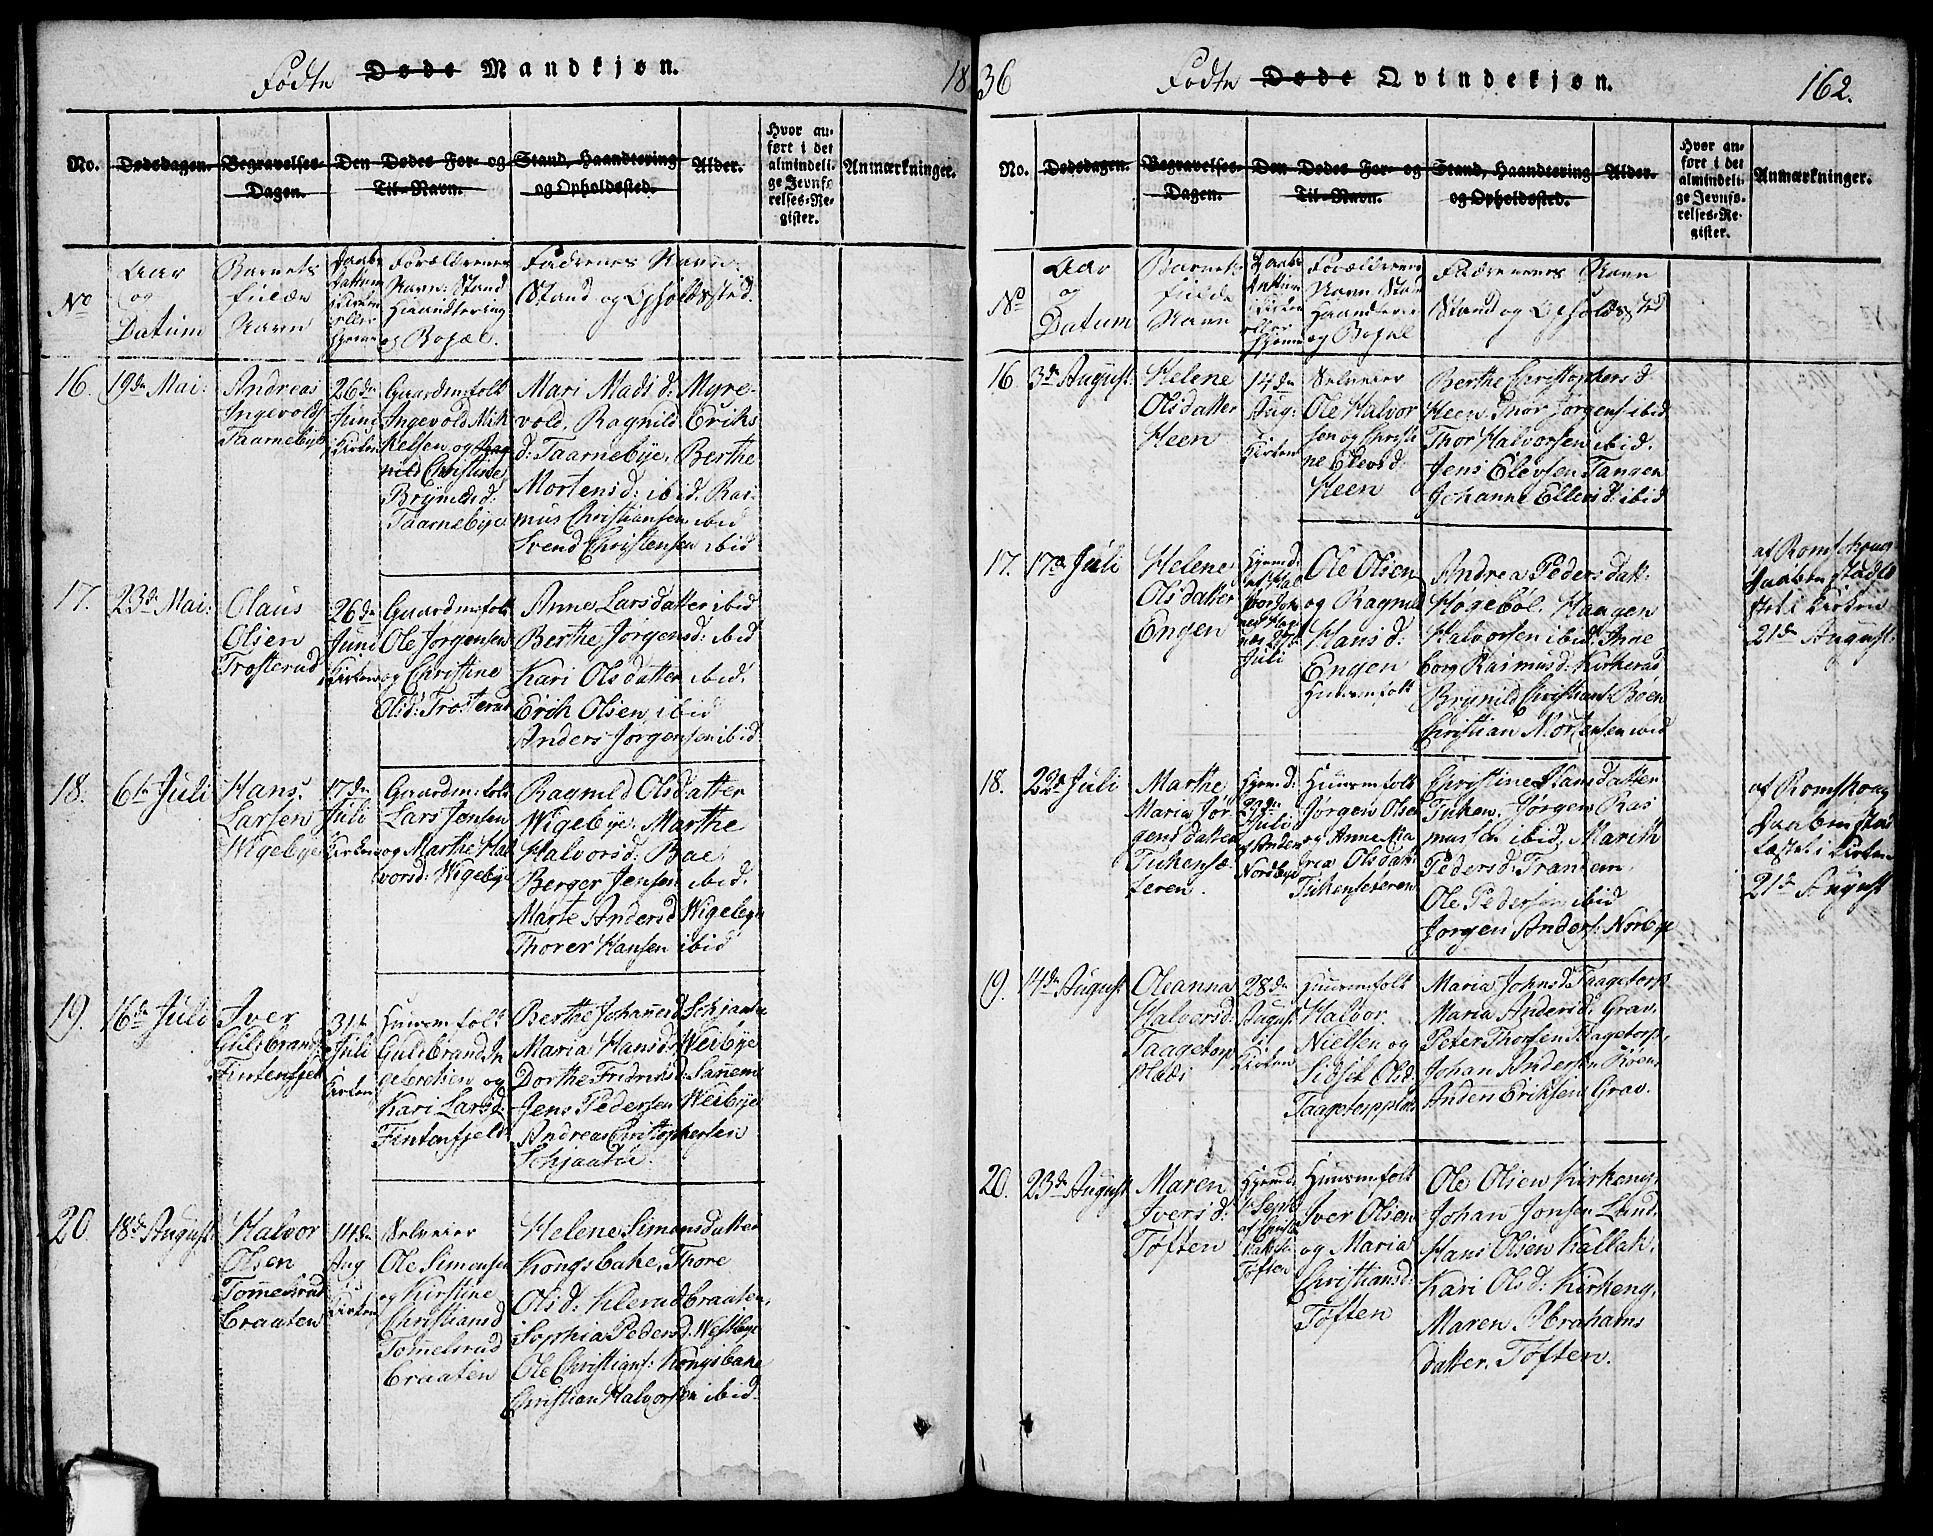 Fødte Døde Mandkjøn.
18
No.
Dødsdagen.
Begravelses-
Dagen.
Den Dødes For- og
Til-Navn.
Stand, Haandtering
og Opholdssted.
Alder.
Hvor an-
ført i det
almindeli-
ge Jevnfø-
relses-Re-
gister.
Anmærkninger.
No
Aar
og
Datum
Barnets
fulde
Navn
Daabs
Dattum
i Kirken
eller
hjemme
Forældrenes
Navn: Stand
Haandtering
og Bopæl.
Faddernes Navn
Stand og Opholdssted.
16.
19de Mai:
Andreas
Ingevolds
Taarnebye
26de
Juni
Kirken
Gaardmsfolk
Ingevold Mik
kelsen og Rag
nild Christine
Brynilds d:
Taarnebye
Mari Mads d: Myre-
vold, Ragnild Eriks
d: Taarnebye, Berthe
Mortensd: ibid. Ras
mus Christiansen ibid
Svend Christensen ibid
17.
23de Mai:
Olaus
Olsen
Trosterud
26de
Juni
Kirken
Gaardmsfolk
Ole Jørgensen
og Christine
Olsd: Trosterud
Anne Larsdatter ibid
Berthe Jørgensd: ibid
Kari Olsdatter ibid.
Erich Olsen ibid
Anders Jørgensen ibid
18.
6te Juli
Hans
Larsen
Wigebye
17de
Juli
Kirken
Gaardmsfolk
Lars Jensen
og Marthe Hal
vorsd: Wigebye
Ragnild Olsdatter
Wigebye. Marthe
Halvorsd: Bae
Berger Jensen ibid.
Marte Andersd Wigebye
Thorer Hansen ibid
19.
16de Juli
Iver
Guldbrands
Fintenfjeld
31te
Juli
i
Kirken
Huusmsfolk
Guldbrand In
gebretsen og
Kari Larsd:
Fintenfjeld
Berthe Johannesd Schjaatin
Maria Hansd: Weibye
Dorthe Fridriksd: Sanem
Jens Pedersen Weibye
Andreas Christophersen
Schjaatin.
20
18de August
Halvor
Olsen
Tomelsrud
braaten
14de
Aug
i
Kirken
Selveier
Ole Simonsen
og Kirstine
Christiansd
Tomelsrud
braaten
Helene Simonsdatter
Kongsbake, Thore
Olsd: Klerudbraaten,
Sophia Pedersd: Westbye
Ole Christians: Kongsbake
Christian Halvorsen ibid.
36
Fødte Døde Qvindekjøn.
162.
No.
Dødsdagen.
Begravelses-
Dagen.
Den Dødes For- og
Til-Navn.
Stand, Haandtering
og Opholdssted.
Alder.
Hvor an-
ført i det
almindeli-
ge Jevnfø-
relses-Re-
gister.
Anmærkninger.
No
Aar
og
Datum
Barnets
fulde
Navn
Daabs
Dattum
i Kirken
eller
hjemme
Forældrenes
Navn Stand
Haandtering
og Bopæl
Faddernes Navn
Stand og Opholdssted
16
3de August
Helene
Olsdatter
Heen
14de
Aug:
Kirken
Selveier
Ole Halvor
sen og Christi
ne Elevsd:
Heen
Berthe Christophersd.
Heen. Thor Jørgens: ibid
Thor Halvorsen ibid.
Jens Elevsen Tangen
Johanne Ellersd: ibid
17.
17de Juli
Helene
Olsdatter
Engen
Juli
Ole Olsen
og Ragnild
Hansd:
Engen
Huusmsfolk
Andrea Pedersdatt:
Høgebøl. Haagen
Halvorsen ibid. Inge
borg Rasmusd: Kirkerud
Brynild Christians: Bøen
Christian Mortensen ibid
af Romschoug
Daaben stadfæ
stet i Kirken
21de August.
18.
22de Juli
Marthe
Maria Jør
gensdatter
Tukensæ
teren.
Hjemd:
Juli
af Anders
Nordbye
Huusmsfolk
Jørgen Olsen
og Anne Ma
ria Olsdatt:
Tukenseteren
Christine Hansdatter
Tuken. Jørgen Ras
musen ibid. Marith
Pedersd: Tranem.
Ole Pedersen ibid
Jørgen Anders: Norbye
af Romskoug
Daaben stad
fæstet i Kirken
21de August
19.
14de August
Oleanna
Halvorsd:
Taagetorp
plads
28de
August
i
Kirken
Huusmsfolk
Halvor
Nielsen og
Sidsel Olsd:
Taagetorpplads
Maria Johnsd. Taagetorp
Maria Andersd: Grav.
Peter Thorsen Taagetorp,
Johan Andersen
Anders Eriksen Grav.
20.
23de August
Maren
Iversd:
Toften
Hjemd:
Sept
Toften
Huusmsfolk
Iver Olsen
og Maria
Christiansd:
Toften
Ole Olsen Kirkeng,
Johan Jonsen Lund,
Hans Olsen Kallak,
Kari Olsd: Kirkeng,
Maren Abrahams
datter. Toften.